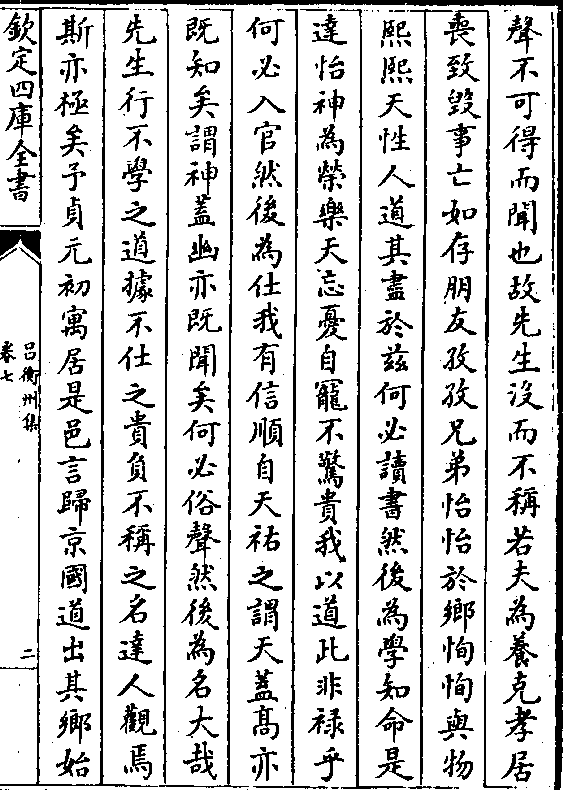 聲不可得而聞也故先生沒而不稱若夫為養克孝居
喪致毁事亡如存朋友孜孜兄弟怡怡於鄉恂恂與物
熙熙天性人道其盡於兹何必讀書然後為學知命是
達怡神為榮樂天忘憂自寵不驚貴我以道此非禄乎
何必入官然後為仕我有信順自天祐之謂天蓋髙亦
既知矣謂神蓋幽亦既聞矣何必俗聲然後為名大哉
先生行不學之道據不仕之貴負不稱之名達人觀焉
斯亦極矣予貞元初寓居是邑言歸京國道出其鄉始
欽定四庫全書
吕衡州集
卷七
二